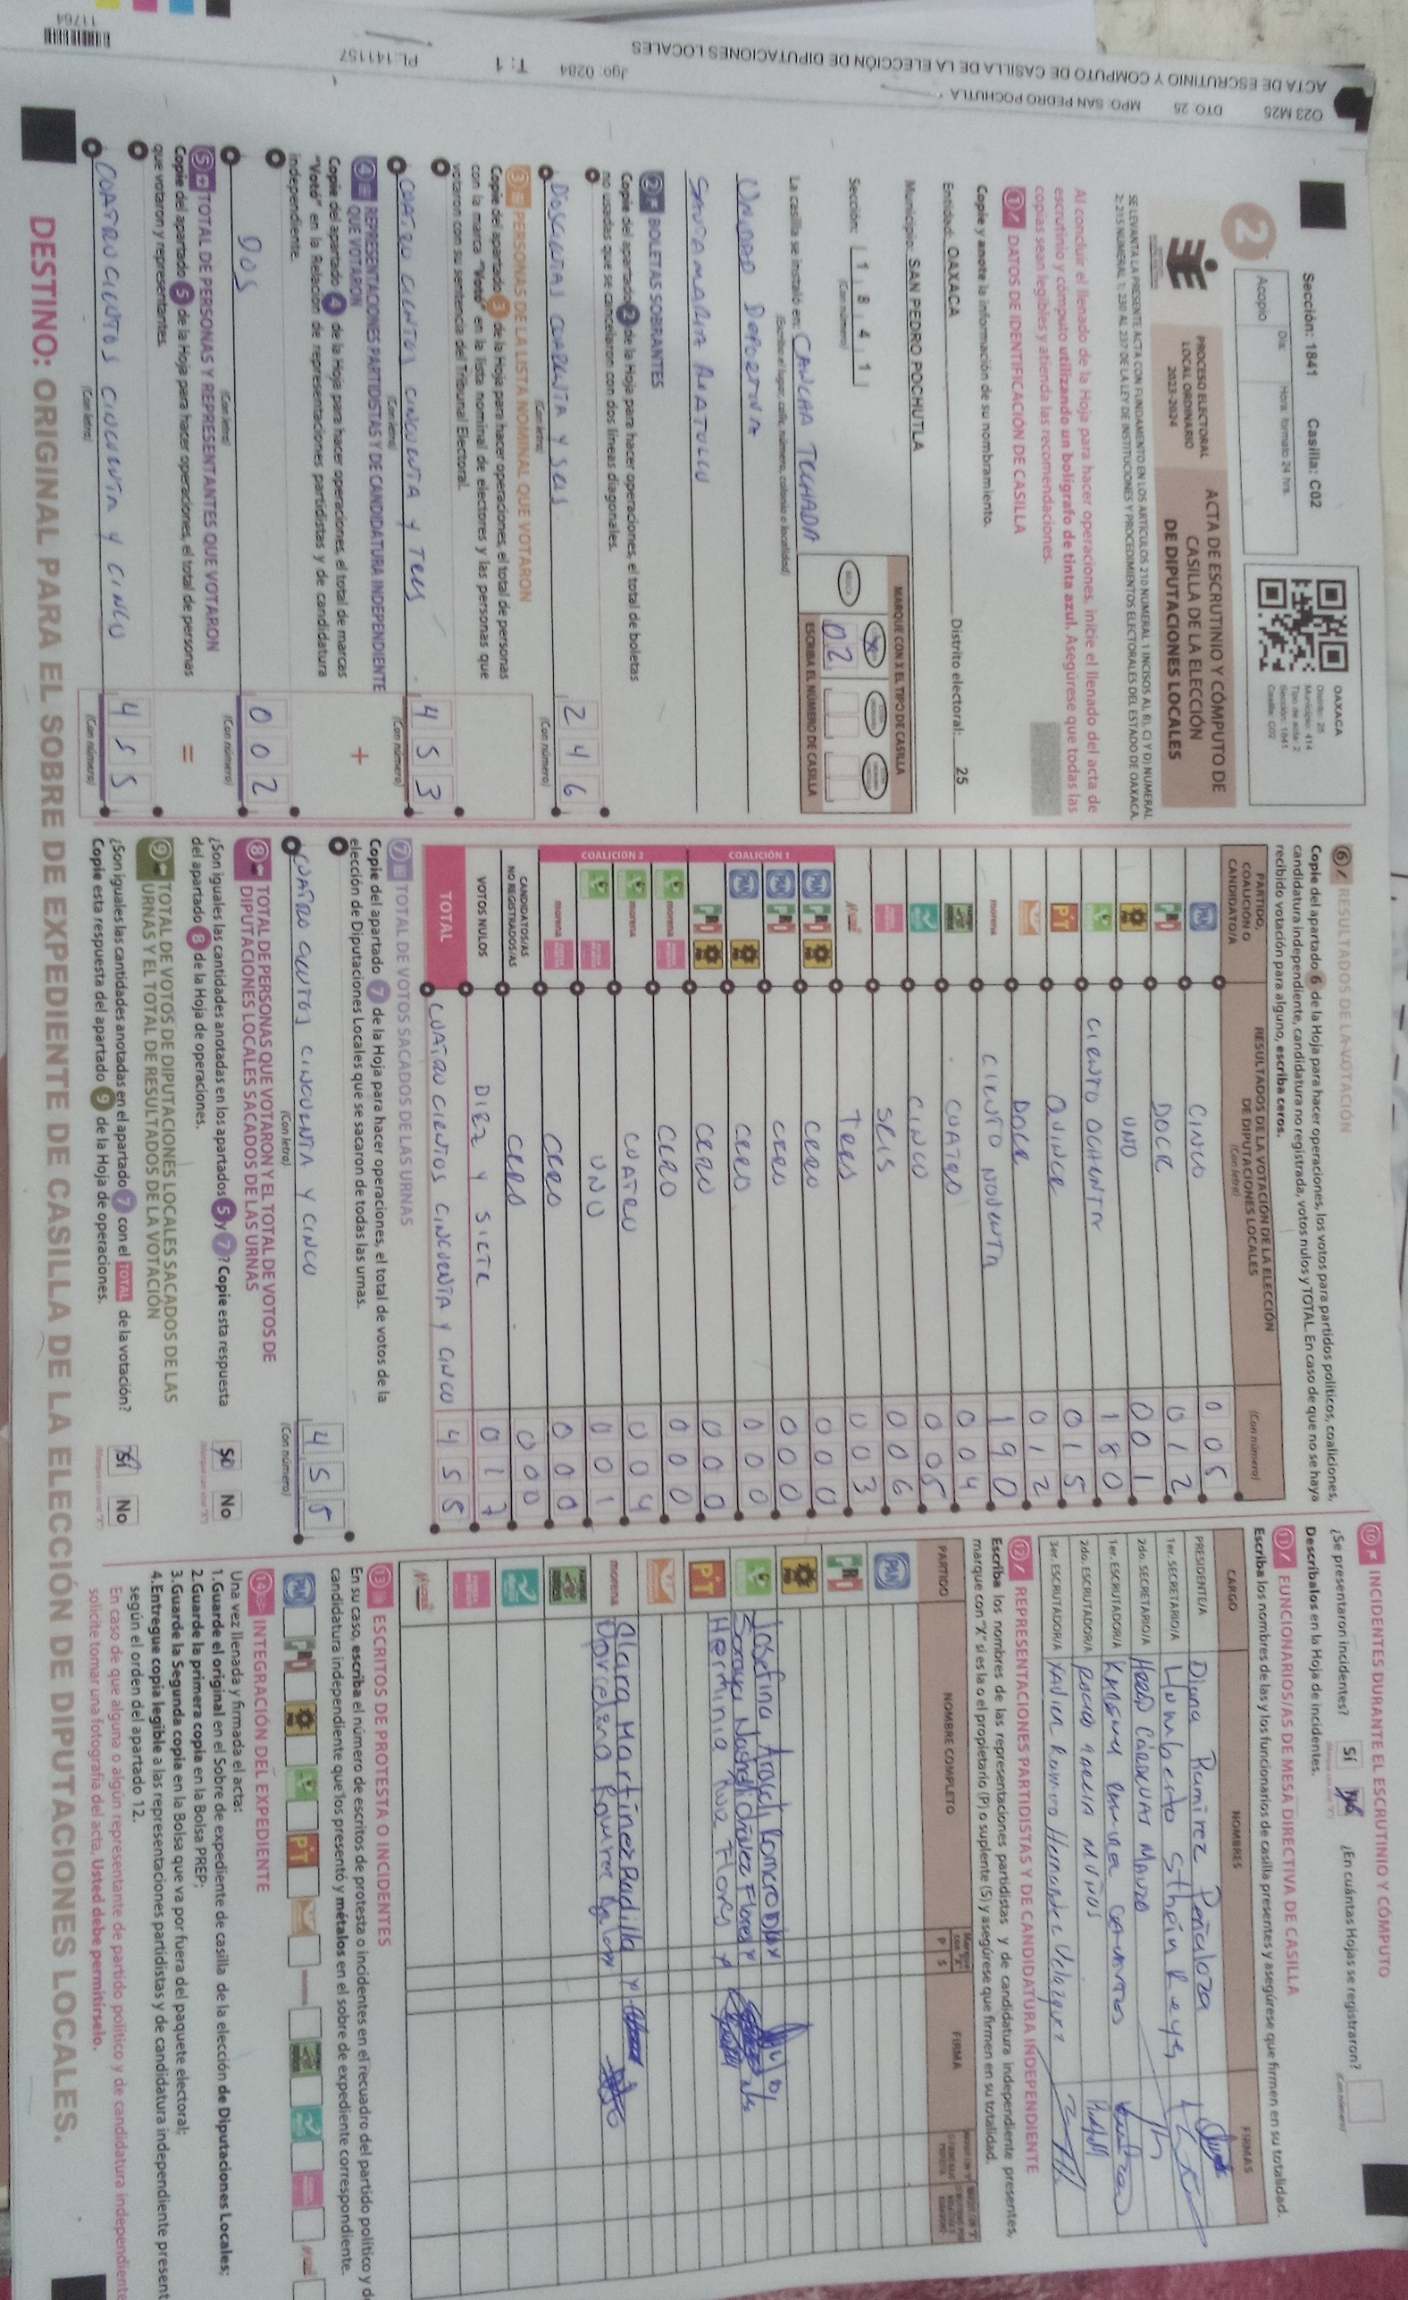 ACTA DE ESCRUTINIO Y CÓMPUTO DE CASILLA DE LA ELECCIÓN DE DIPUTACIONES LOCALES
023 M25 DTO 25 MPO: SAN PEDRO POCHUTLA
Jgo: 0284 T: 1 PL:141157
11764
Sección: 1841 Casilla: C02
2
Acopio
Día:
Hora: formato 24 hrs.
OAXACA
Distrito: 25
Municipio: 414
Tipo de acta: 2
Sección: 1841
Casilla: C02
PROCESO ELECTORAL
LOCAL ORDINARIO
2023-2024
ACTA DE ESCRUTINIO Y CÓMPUTO DE
CASILLA DE LA ELECCIÓN
DE DIPUTACIONES LOCALES
SE LEVANTA LA PRESENTE ACTA CON FUNDAMENTO EN LOS ARTÍCULOS 210 NUMERAL 1 INCISOS A), B), C) Y D) NUMERAL
2; 215 NUMERAL 1; 230 AL 237 DE LA LEY DE INSTITUCIONES Y PROCEDIMIENTOS ELECTORALES DEL ESTADO DE OAXACA.
Al concluir el llenado de la Hoja para hacer operaciones, inicie el llenado del acta de
escrutinio y cómputo utilizando un bolígrafo de tinta azul. Asegúrese que todas las
copias sean legibles y atienda las recomendaciones.
1 DATOS DE IDENTIFICACIÓN DE CASILLA
Copie y anote la información de su nombramiento.
Entidad: OAXACA Distrito electoral: 25
Municipio: SAN PEDRO POCHUTLA
Sección: 1 8 4 1
(Con número)
MARQUE CON X EL TIPO DE CASILLA
BÁSICA
ESCRIBA EL NÚMERO DE CASILLA
02
La casilla se instaló en: CANCHA TECHADA
(Escriba el lugar, calle, número, colonia o localidad)
UNIDAD DEPORTIVA
SANTA MARIA
2 BOLETAS SOBRANTES
Copie del apartado 2 de la Hoja para hacer operaciones, el total de boletas
no usadas que se cancelaron con dos líneas diagonales.
DOSCIENTAS CUARENTA Y SEIS 2 4 6
(Con letra) (Con número)
3 PERSONAS DE LA LISTA NOMINAL QUE VOTARON
Copie del apartado 3 de la Hoja para hacer operaciones, el total de personas
con la marca "Votó" en la lista nominal de electores y las personas que
votaron con su sentencia del Tribunal Electoral.
CUATRO CIENTOS CINCUENTA Y TRES 4 5 3
(Con letra) (Con número)
4 REPRESENTACIONES PARTIDISTAS Y DE CANDIDATURA INDEPENDIENTE
QUE VOTARON +
Copie del apartado 4 de la Hoja para hacer operaciones, el total de marcas
"Votó" en la Relación de representaciones partidistas y de candidatura
independiente.
DOS 0 0 2
(Con letra) (Con número)
5 TOTAL DE PERSONAS Y REPRESENTANTES QUE VOTARON
Copie del apartado 5 de la Hoja para hacer operaciones, el total de personas =
que votaron y representantes.
CUATRO CIENTOS CINCUENTA Y CINCO 4 5 5
(Con letra) (Con número)
6 RESULTADOS DE LA VOTACIÓN
Copie del apartado 6 de la Hoja para hacer operaciones, los votos para partidos políticos, coaliciones,
candidatura independiente, candidatura no registrada, votos nulos y TOTAL. En caso de que no se haya
recibido votación para alguno, escriba ceros.
PARTIDO,
COALICIÓN O
CANDIDATO/A
RESULTADOS DE LA VOTACIÓN DE LA ELECCIÓN
DE DIPUTACIONES LOCALES
(Con letra)
(Con número)
PAN CINCO 0 0 5
PRI DOCE 0 1 2
UNO 0 0 1
CIENTO OCHENTA 1 8 0
PT QUINCE 0 1 5
DOCE 0 1 2
morena CIENTO NOVENTA 1 9 0
CUATRO 0 0 4
CINCO 0 0 5
SEIS 0 0 6
TRES 0 0 3
COALICIÓN 1
PAN PRI CERO 0 0 0
PAN PRI CERO 0 0 0
PAN CERO 0 0 0
PRI CERO 0 0 0
COALICIÓN 2
morena CERO 0 0 0
morena CUATRO 0 0 4
UNO 0 0 1
morena CERO 0 0 0
CANDIDATOS/AS
NO REGISTRADOS/AS CERO 0 0 0
VOTOS NULOS DIEZ Y SIETE 0 1 7
TOTAL CUATRO CIENTOS CINCUENTA Y CINCO 4 5 5
7 TOTAL DE VOTOS SACADOS DE LAS URNAS
Copie del apartado 7 de la Hoja para hacer operaciones, el total de votos de la
elección de Diputaciones Locales que se sacaron de todas las urnas.
CUATRO CIENTOS CINCUENTA Y CINCO 4 5 5
(Con letra) (Con número)
8 TOTAL DE PERSONAS QUE VOTARON Y EL TOTAL DE VOTOS DE
DIPUTACIONES LOCALES SACADOS DE LAS URNAS
¿Son iguales las cantidades anotadas en los apartados 5 y 7? Copie esta respuesta
del apartado 8 de la Hoja de operaciones.
Sí No
9 TOTAL DE VOTOS DE DIPUTACIONES LOCALES SACADOS DE LAS
URNAS Y EL TOTAL DE RESULTADOS DE LA VOTACIÓN
¿Son iguales las cantidades anotadas en el apartado 7 con el TOTAL de la votación?
Copie esta respuesta del apartado 9 de la Hoja de operaciones.
Sí No
10 INCIDENTES DURANTE EL ESCRUTINIO Y CÓMPUTO
¿Se presentaron incidentes? Sí No ¿En cuántas Hojas se registraron?
(Con número)
Descríbalos en la Hoja de incidentes.
11 FUNCIONARIOS/AS DE MESA DIRECTIVA DE CASILLA
Escriba los nombres de las y los funcionarios de casilla presentes y asegúrese que firmen en su totalidad.
CARGO NOMBRES FIRMAS
PRESIDENTE/A Diana Ramirez Peñaloza
1er. SECRETARIO/A Humberto Sthein Reyes
2do. SECRETARIO/A CARDENAS MAURO
1er. ESCRUTADOR/A
2do. ESCRUTADOR/A ROCIO
3er. ESCRUTADOR/A Hernandez Velazquez
12 REPRESENTACIONES PARTIDISTAS Y DE CANDIDATURA INDEPENDIENTE
Escriba los nombres de las representaciones partidistas y de candidatura independiente presentes,
marque con "X" si es la o el propietario (P) o suplente (S) y asegúrese que firmen en su totalidad.
PARTIDO NOMBRE COMPLETO P S FIRMA
PAN
PRI
Josefina Araceli Romero Diaz
Soraya Flores
PT Herminia Flores
Clara Martínez Padilla
morena Ramirez
13 ESCRITOS DE PROTESTA O INCIDENTES
En su caso, escriba el número de escritos de protesta o incidentes en el recuadro del partido político y d
candidatura independiente que los presentó y métalos en el sobre de expediente correspondiente.
PAN PRI PT
14 INTEGRACIÓN DEL EXPEDIENTE
Una vez llenada y firmada el acta:
1.Guarde el original en el Sobre de expediente de casilla de la elección de Diputaciones Locales;
2.Guarde la primera copia en la Bolsa PREP;
3.Guarde la Segunda copia en la Bolsa que va por fuera del paquete electoral;
4.Entregue copia legible a las representaciones partidistas y de candidatura independiente present
según el orden del apartado 12.
En caso de que alguna o algún representante de partido político y de candidatura independiente
solicite tomar una fotografía del acta, Usted debe permitírselo.
DESTINO: ORIGINAL PARA EL SOBRE DE EXPEDIENTE DE CASILLA DE LA ELECCIÓN DE DIPUTACIONES LOCALES.